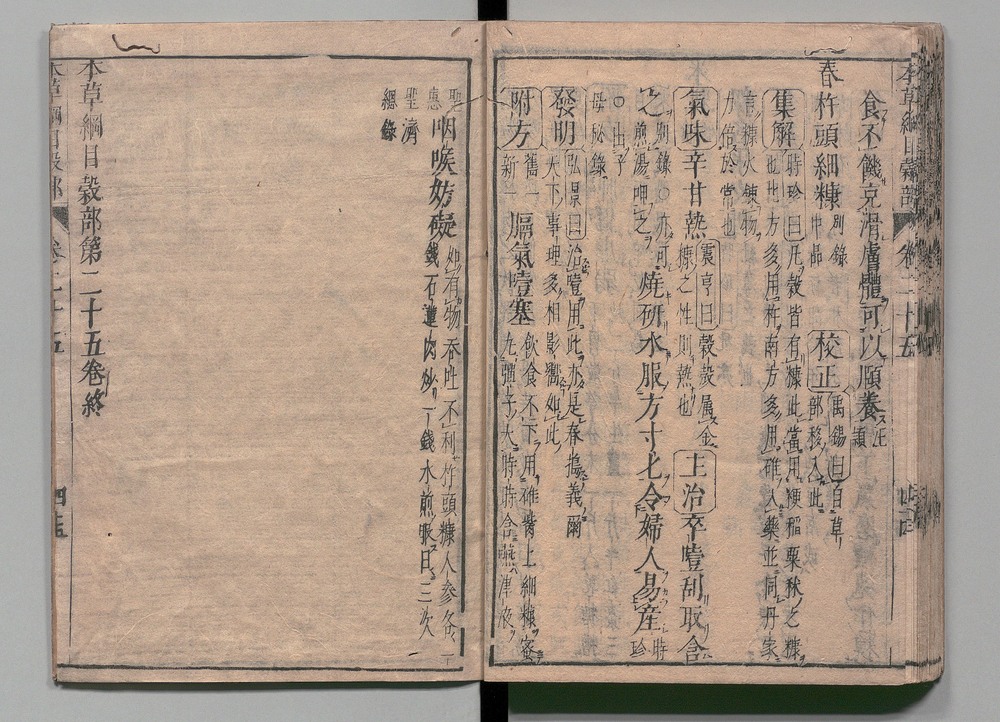 食不饑充滑膚體可以頤養汪
穎
舂杵頭細糠別錄
中品校正禹錫曰自草
部移入此
集解時珍曰凡穀皆有糠此當用粳稻粟秫之糠
也北方多用杵南方多用碓入藥並同丹家
言糠火鍊物
力倍於常也
氣味辛甘熱震亨曰穀殼属金
糠之性則熱也主治卒噎刮取含
之別錄○亦可
煎湯呷之燒研水服方寸匕令婦人易產時
珍
○出子
母秘錄
發明弘景曰治噎用此亦是舂搗義爾
天下事理多相影響如此
附方舊一
新一膈氣噎塞飲食不下用碓觜上細糠蜜
丸彈子大時時含嚥津液
聖
惠咽喉妨礙如有物吞吐不利杵頭糠人參各一
錢石蓮肉炒一錢水煎服日三次
聖濟
總錄
本草綱目穀部第二十五卷終